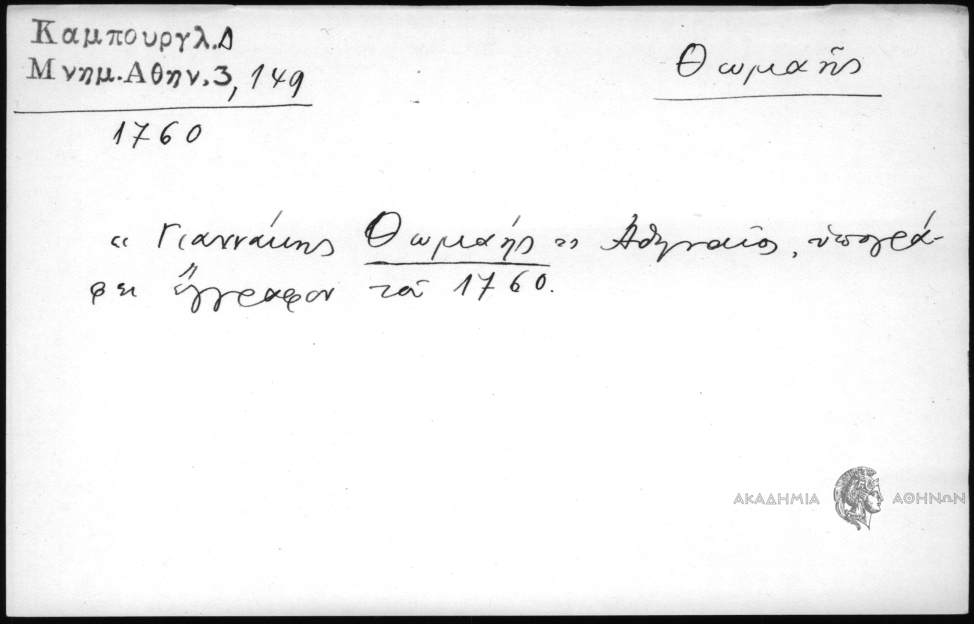 Καμπουργλ.Δ
Μνημ.Αθην.3, 149
Θωμαῆς
1760
« Γιαννάκης Θωμαής » Ἀθηναῖος, ὑπογρά-
φει ἔγγραφον τοῦ 1760.
ΑΚΑΔΗΜΙΑ ΑΘΗΝΩΝ